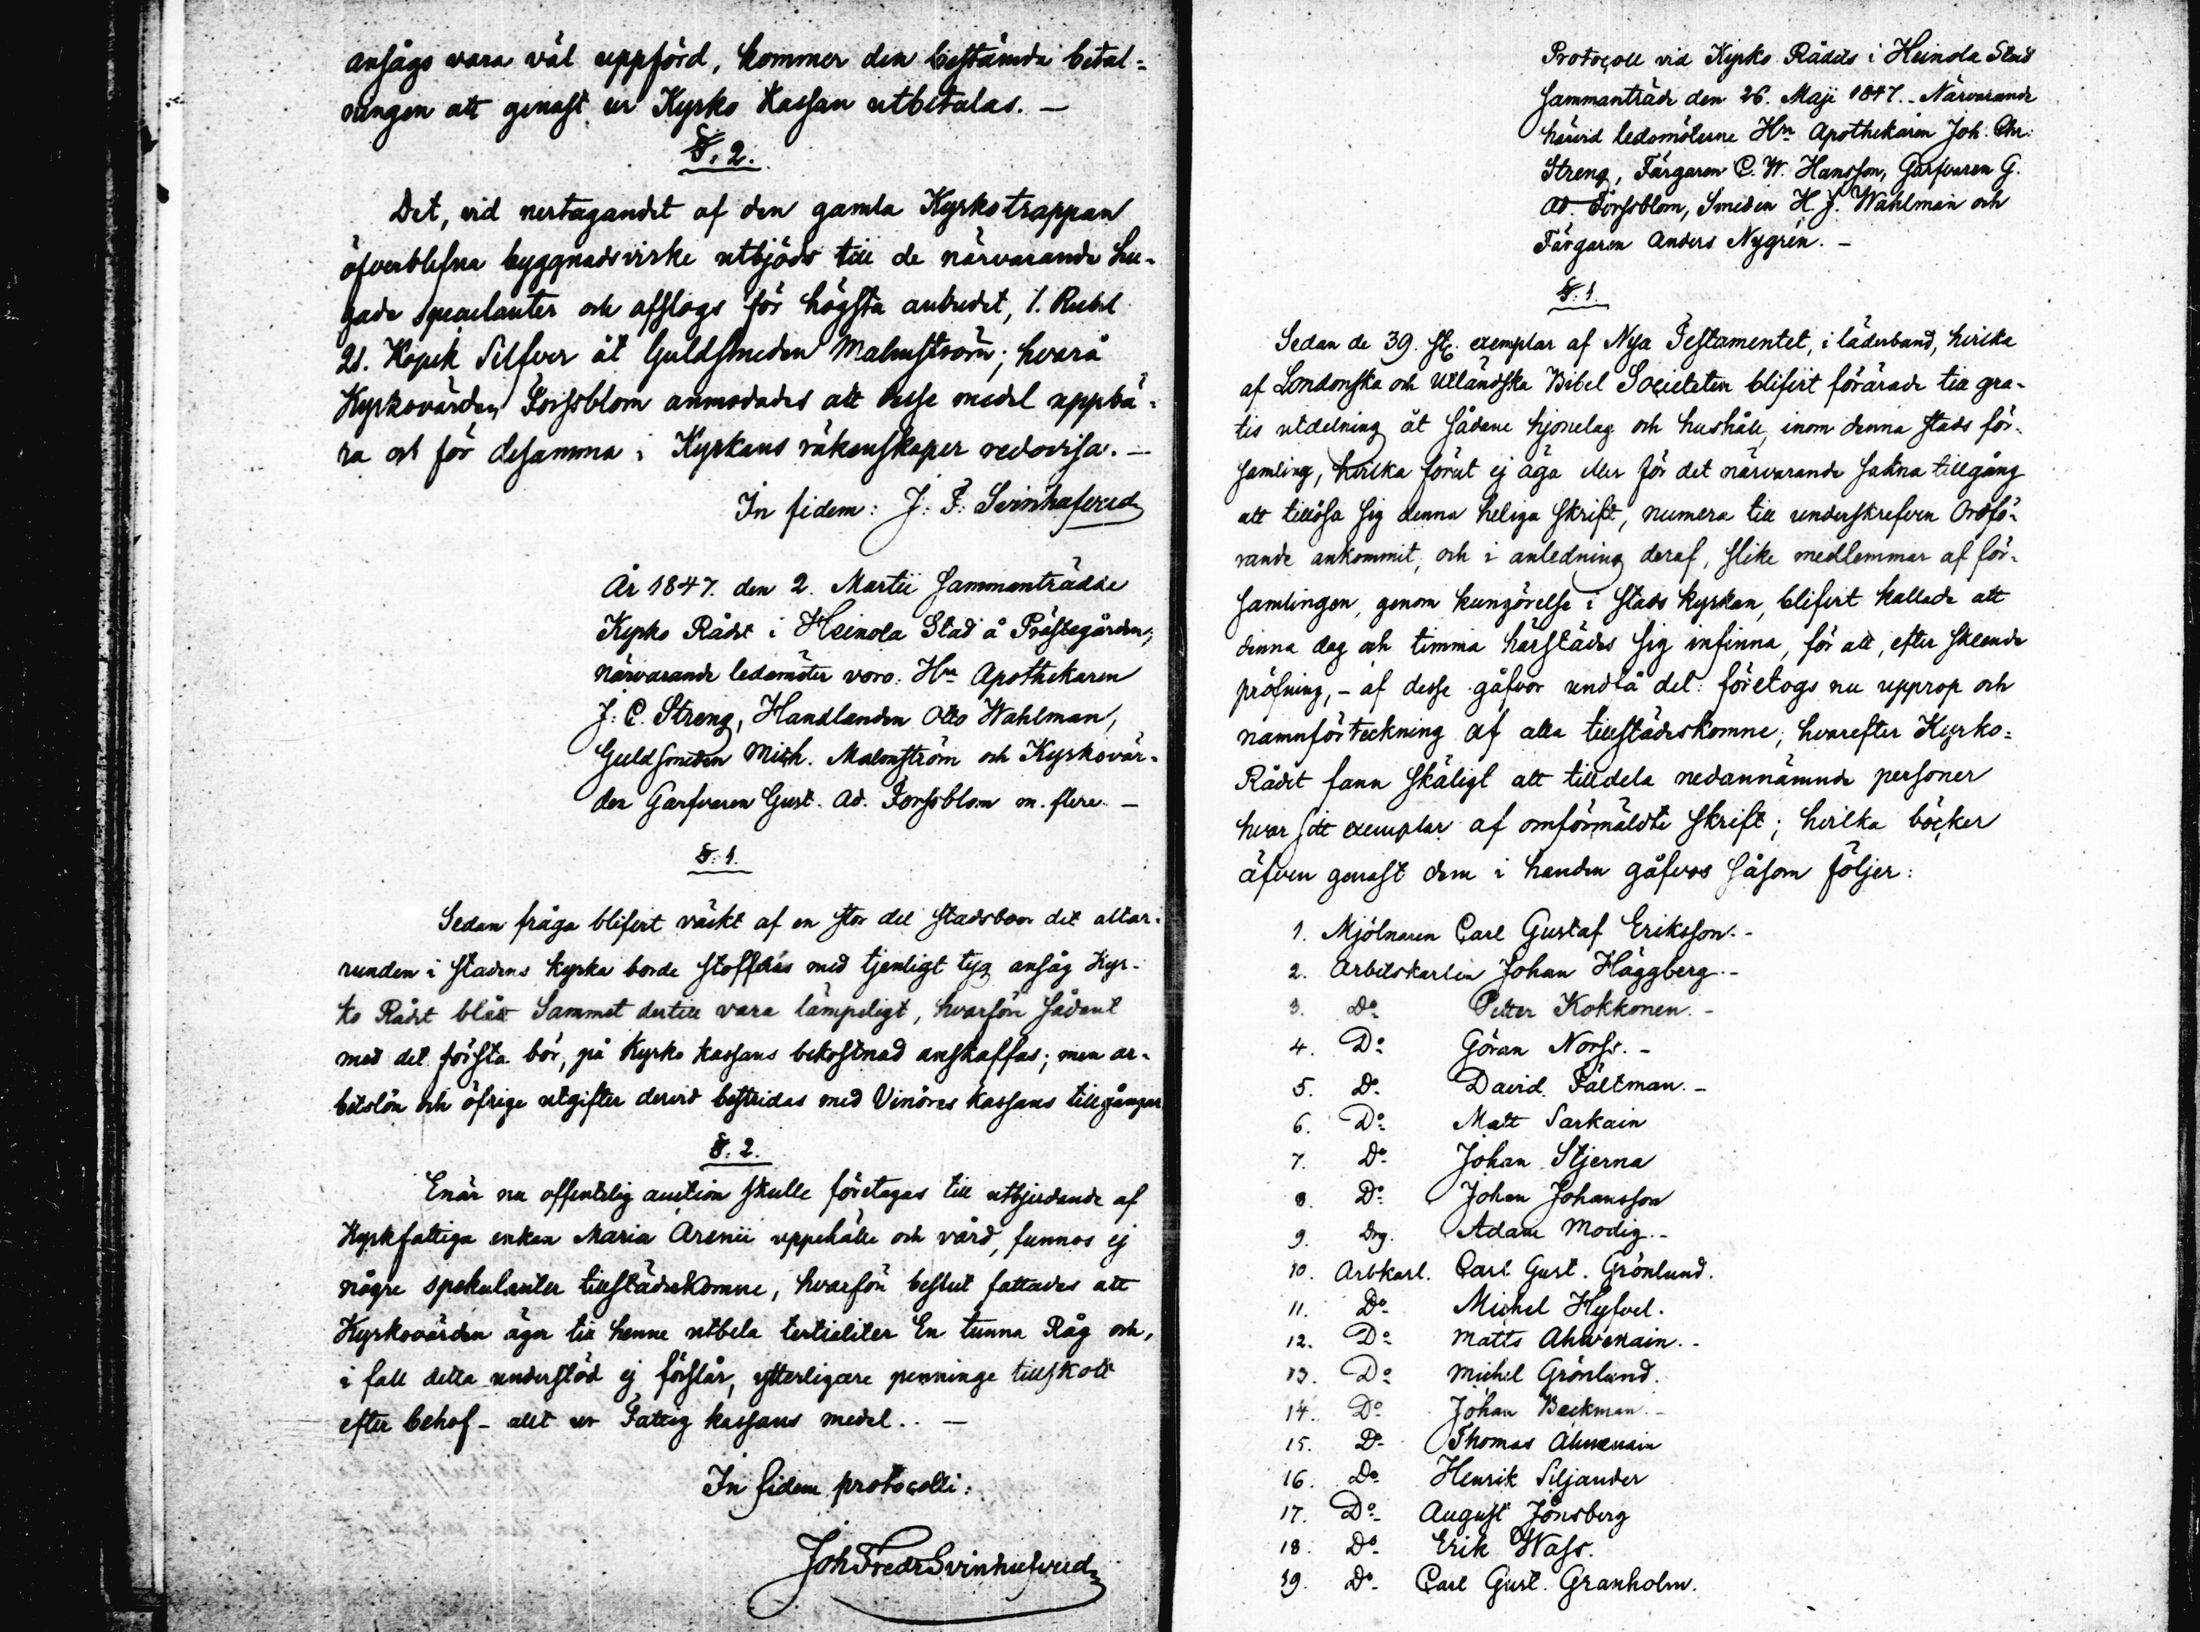 ansågs vara väl uppförd, kommer den bestämda betal-
ningen att genast ur Kyrko Kassan utbetalas. —
§. 2.
Det, vid nertagandet af den gamla Kyrkotrappan
öfverblefna byggnadsvirke utbjöds till de närvarande hu-
gade speculanter och afslogs för högsta anbudet, 1. Rubel
21. Kopek Silfver åt Guldsmeden Malmström; hvarå
Kyrkovärden Forssblom anmodades att desse medel uppbä-
ra och för desamma i Kyrkans räkenskaper redovisa. —
In fidem: J. F. Svinhufvud
År 1847. den 2. Martii sammanträdde
Kyrko Rådet i Heinola Stad å Prästegården;
närvarande ledamöter voro: Hrr Apothekaren
J: C. Streng, Handlanden Otto Wahlman,
Guldsmeden Mich. Malmström och Kyrkovär-
den Garfvaren Gust. Ad. Forssblom m. flere. —
§. 1.
Sedan fråga blifvit väckt af en stor del stadsboer det altar-
runden i stadens kyrka borde stofferas med tjenligt tyg ansåg Kyr-
ko Rådet blått Sammet dertill vara lämpeligt, hvarföre sådant
med det första bör, på Kyrko kassans bekostnad anskaffas; men ar-
betslön och öfrige utgifter dervid bestridas med Vinöres kassans tillgångar
§. 2.
Enär nu offentelig auction skulle företagas till utbjudande af
Kyrkfattiga enkan Maria Arenii uppehälle och vård, funnos ej
någre spekulanter tillstädeskomne, hvarföre beslut fattades att
Kyrkovärden äger till henne utdela tertialiter En tunna Råg och,
i fall detta understöd ej förslår, ytterligare penninge tillskott
efter behof - allt ur Fattig kassans medel. . —
In fidem protocolli:
Joh Fredr Svinhufvud
Protocoll vid Kyrko Rådets i Heinola Stad
sammanträde den 26. Maji 1847. - Närvarande
härvid ledamöterne Hrr Apothekaren Joh. Chr.
Streng, Färgaren C. W. Hansson, Garfvaren G.
Ad. Forssblom, Smeden H. J. Wahlman och
Färgaren Anders Nygrén. —
§. 1.
Sedan de 39. st. exemplar af Nya Testamentet, i läderband, hvilka
af Londonska och Utländska Bibel Societeten blifvit förärade till gra-
tis utdelning åt sådane hjonelag och hushåll, inom denna stads för-
samling, hvilka förut ej äga eller för det närvarande sakna tillgång
att tillösa sig denna heliga skrift, numera till underskrefven Ordfö-
rande ankommit, och i anledning deraf, slike medlemmar af för-
samlingen, genom kungörelse i stads kyrkan, blifvit kallade att
denna dag och timma härstädes sig infinna, för att, efter skeende
pröfning, - af desse gåfvor undfå del: företogs nu upprop och
namnförteckning af alla tillstädeskomne; hvarefter Kyrko-
Rådet fann skäligt att tilldela nedannämnde personer
hvar sitt exemplar af omförmäldte skrift; hvilka böcker
äfven genast dem i handen gåfvos såsom följer:
1. Mjölnaren Carl Gustaf Eriksson. -
2. Arbetskarlen Johan Häggberg. -
3. Do Petter Kokkonen. -
4. Do Göran Norss. -
5. Do David Fältman. -
6. Do Matt Sarkain
7. Do Johan Stjerna
8. Do Johan Johansson
9. Drg. Adam Modig. -
10. Arbkarl. Carl Gust. Grönlund.
11. Do Michel Hyfvel.
12. Do Matts Ahwenain. -
13. Do Michel Grönlund.
14. Do Johan Backman. -
15. Do Thomas Ahwenain
16. Do Henrik Siljander
17. Do August Jönsberg
18. Do Erik Wass.
19. Do Carl Gust. Granholm.